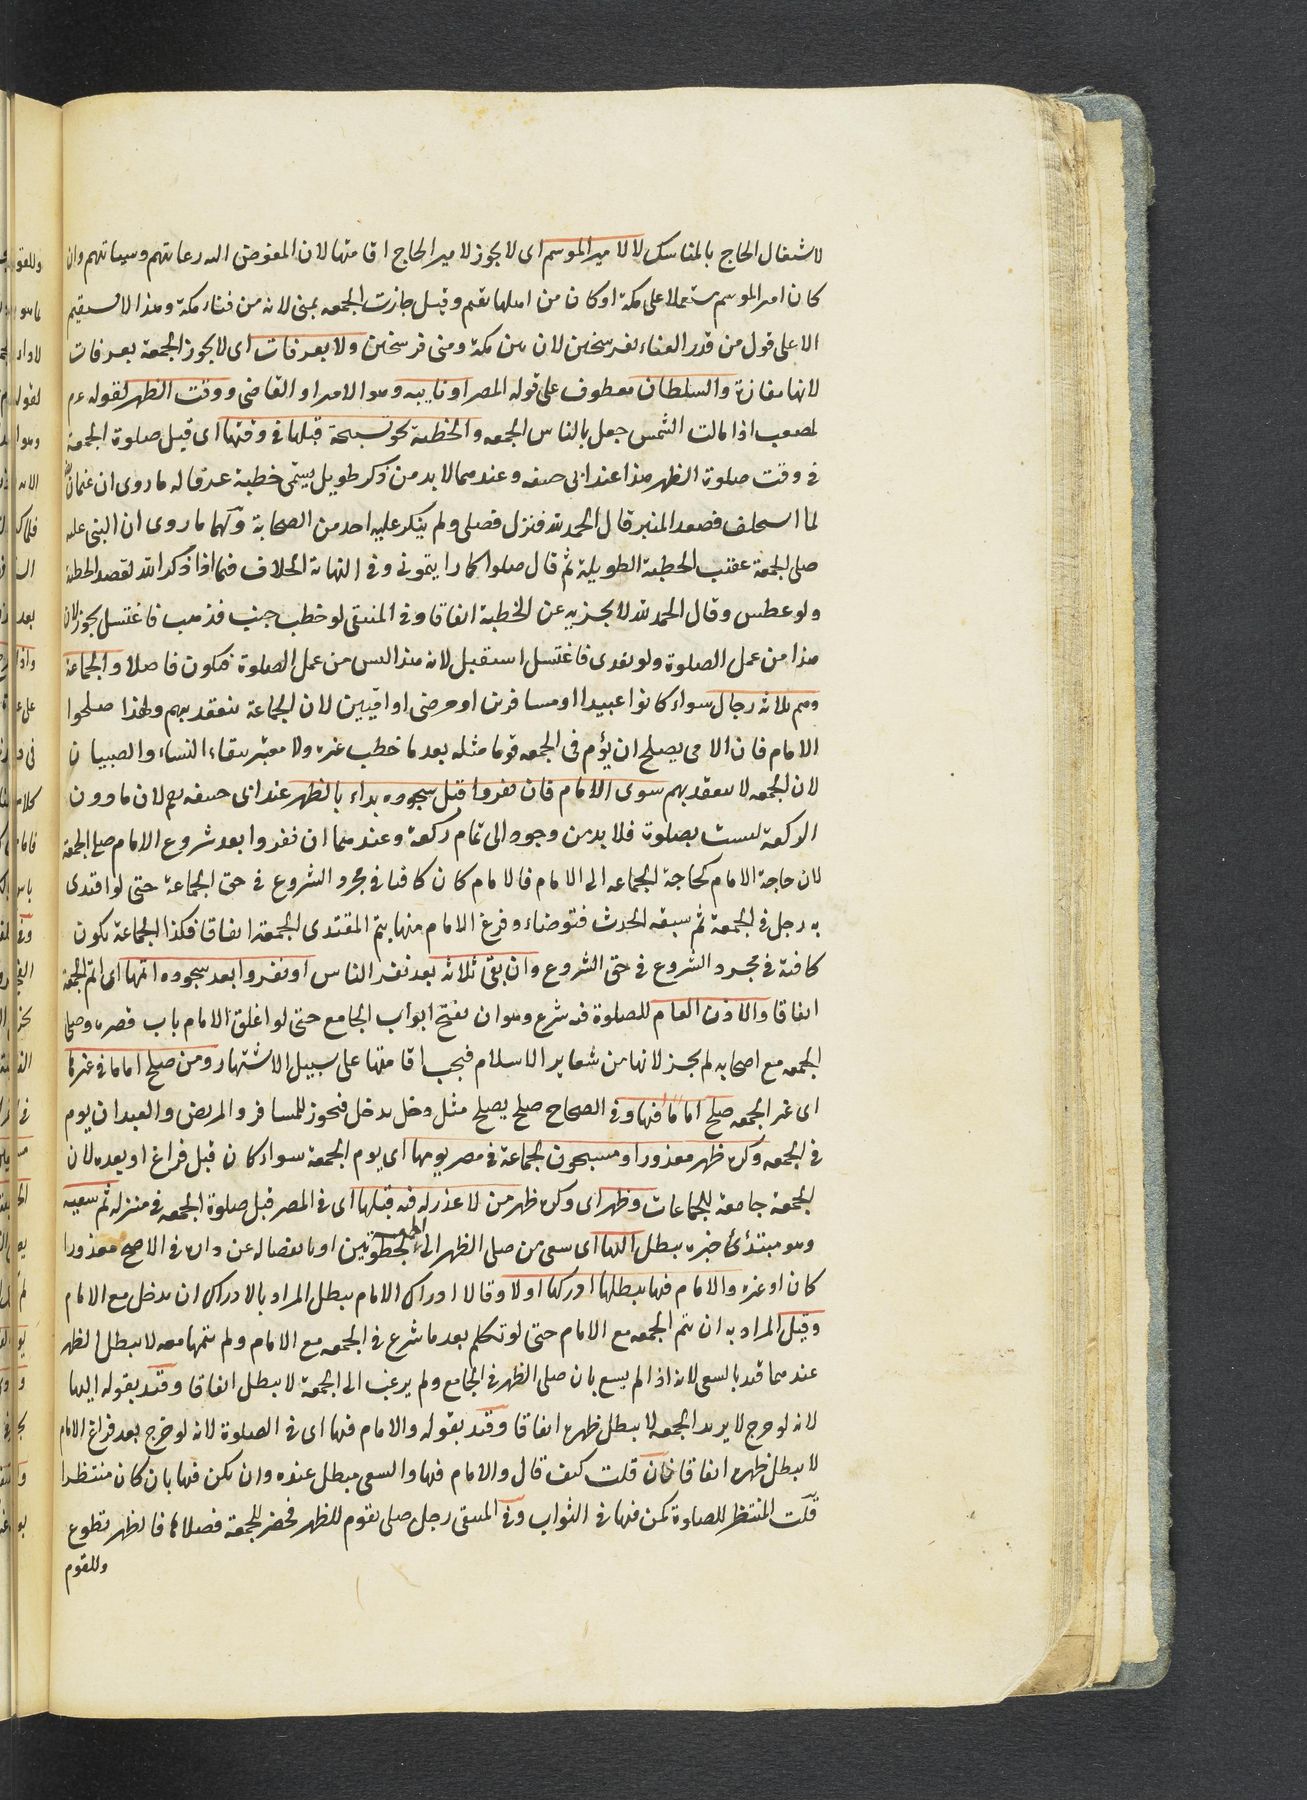 لاشتغال الحاج بالمناسك لا لامير الموسم اى لا يجوز لامير الحاج اقامتها لان المفوض اليه رعايتهم وسياستهم وان
كان امير الموسم مستعملا على مكة او كان من اهلها مقيم وقيل جازت الجمعه بمنى لانه من فناء مكة وهذا لا يستقيم
الا على قول من قدر الفناء بفرسخين لان بين مكة ومنى فرسخين ولا بعرفات اى لا يجوز الجمعة بعرفات
لانها مفازة والسلطان معطوف على قوله المصر او نايبه وهو الامير او القاضى ووقت الظهر لقوله عم
لمصعب اذا مالت الشمس جعل بالناس الجمعه والخطبة نحو تسبيحة قبلها فى وقتها اى قبل صلوة الجمعة
فى وقت صلوة الظهر هذا عند ابى حنيفه وعندهما لا بد من ذكر طويل يسمى خطبة عرفا له ما روى ان عثمان
لما استخلف فصعد المنبر قال الحمد لله فنزل فصلى ولم ينكر عليه احد من الصحابة ولهما ما روى ان النبى عليه
صلى الجمعة عقيب الخطبة الطويلة ثم قال صلوا كما رايتمونى وفى النهاية الخلاف فيما اذا ذكر الله لقصد الخطبة
ولو عطس وقال الحمد لله لا يجزيه عن الخطبة اتفاقا وفى المنتقى لو خطب جنب فذهب فاغتسل يجوز لان
هذا من عمل الصلوة ولو تغدى فاغتسل استقبل لانه هذا ليس من عمل الصلوة فيكون فاصلا والجماعة
وهم ثلاثة رجال سواء كانوا عبيدا او مسافرين او مرضى او اميين لان الجماعة تنعقد بهم ولهذا صلحوا
الامام فان الامى يصلح ان يؤم فى الجمعه قوما مثله بعد ما خطب غيره ولا معتبر ببقاء النساء والصبيان
لان الجمعه لا تنعقد بهم سوى الامام فان نفروا قبل سجوده بداء بالظهر عند ابى حنيفه رح لان ما دون
الركعة ليست بصلوة فلا بد من وجود الى تمام ركعة وعندهما ان نفروا بعد شروع الامام صلى الجمعة
لان حاجة الامام كحاجة الجماعه الى الامام فالامام كان كافيا فى مجرد الشروع فى حق الجماعة حتى لو اقتدى
به رجل فى الجمعة ثم سبقه الحدث فتوضاء وفرغ الامام منها يتم المقتدى الجمعة اتفاقا فكذا الجماعة يكون
كافية فى مجرد الشروع فى حق الشروع وان بقى ثلاثة بعد نفر الناس او نفروا بعد سجوده اتمها اى اتم الجمعة
اتفاقا والاذن العام للصلوة فيه شرع وهو ان يفتح ابواب الجامع حتى لو اغلق الامام باب قصره وصلى
الجمعه مع اصحابه لم يجز لانها من شعاير الاسلام فيجب اقامتها على سبيل الاشتهار ومن صلح اماما فى غيرها
اى غير الجمعه صلح اماما فيها وفى الصحاح صلح يصلح مثل دخل يدخل فيجوز للمسافر والمريض والعبد ان يوم
فى الجمعه وكره ظهر معذور او مسجون بجماعة فى مصر يومها اى يوم الجمعة سواء كان قبل فراغ او بعده لان
الجمعة جامعة للجماعات وظهر اى وكره ظهر من لا عذر له فيه قبلها اى فى المصر قبل صلوة الجمعه فى منزله ثم سعيه
وهو مبتدئ خبره يبطل اليها اى سعى من صلى الظهر الى الجمعة بخطوتين او بانفصاله عن داره فى الاصح معذورا
كان او غيره والامام فيها يبطلها ادركها اولا وقالا ادراك الامام يبطل المراد بالادراك ان يدخل مع الامام
وقيل المراد به ان يتم الجمعه مع الامام حتى لو تكلم بعد ما شرع فى الجمعه مع الامام ولم يتمها معه لا يبطل الظهر
عندهما قيد بالسعى لانه اذا لم يسع بان صلى الظهر فى الجامع ولم يرغب الى الجمعة لا يبطل اتفاقا وقيد بقوله اليها
لانه لو خرج لا يريد الجمعه لا يبطل ظهره اتفاقا وقيد بقوله والامام فيها اى فى الصلوة لانه لو خرج بعد فراغ الامام
لا يبطل ظهره اتفاقا فان قلت كيف قال والامام فيها والسعى مبطل عنده وان يكن فيها بان كان منتظرا
قلت المنتظر للصلوة كمن فيها فى الثواب وفى المنتقى رجل صلى بقوم للظهر فحضر للجمعة فصلاها فالظهر تطوع
وللقوم